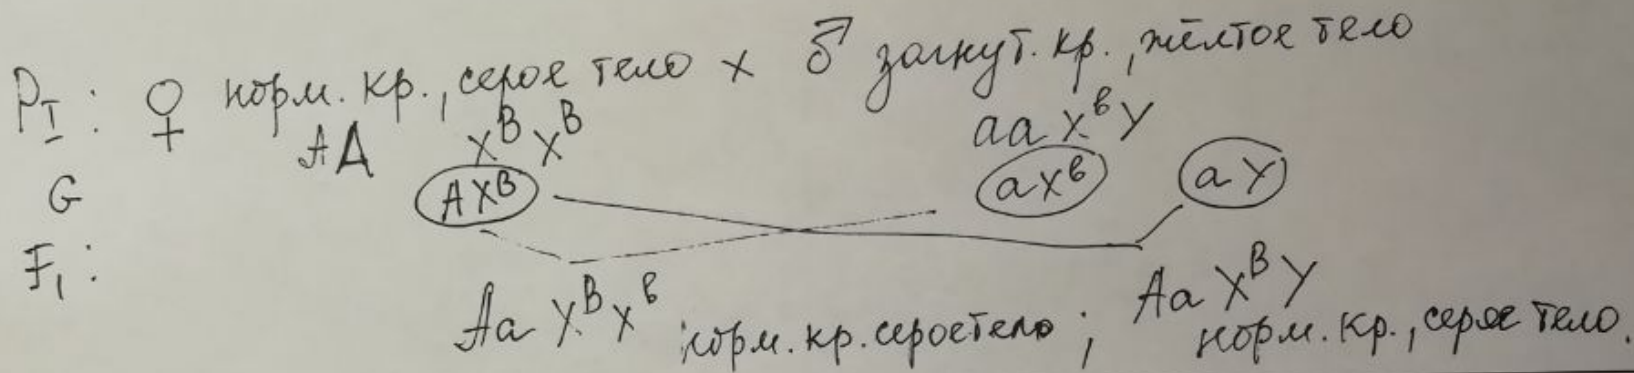 P_I : ♀ норм. кр., серое тело x ♂ загнут. кр., жёлтое тело
АА X^B X^B aa X^в Y
G (A X^B) (a X^в) (a Y)
F₁ :
Aa X^B X^в норм. кр. серое тело ; Aa X^B Y норм. кр., серое тело.